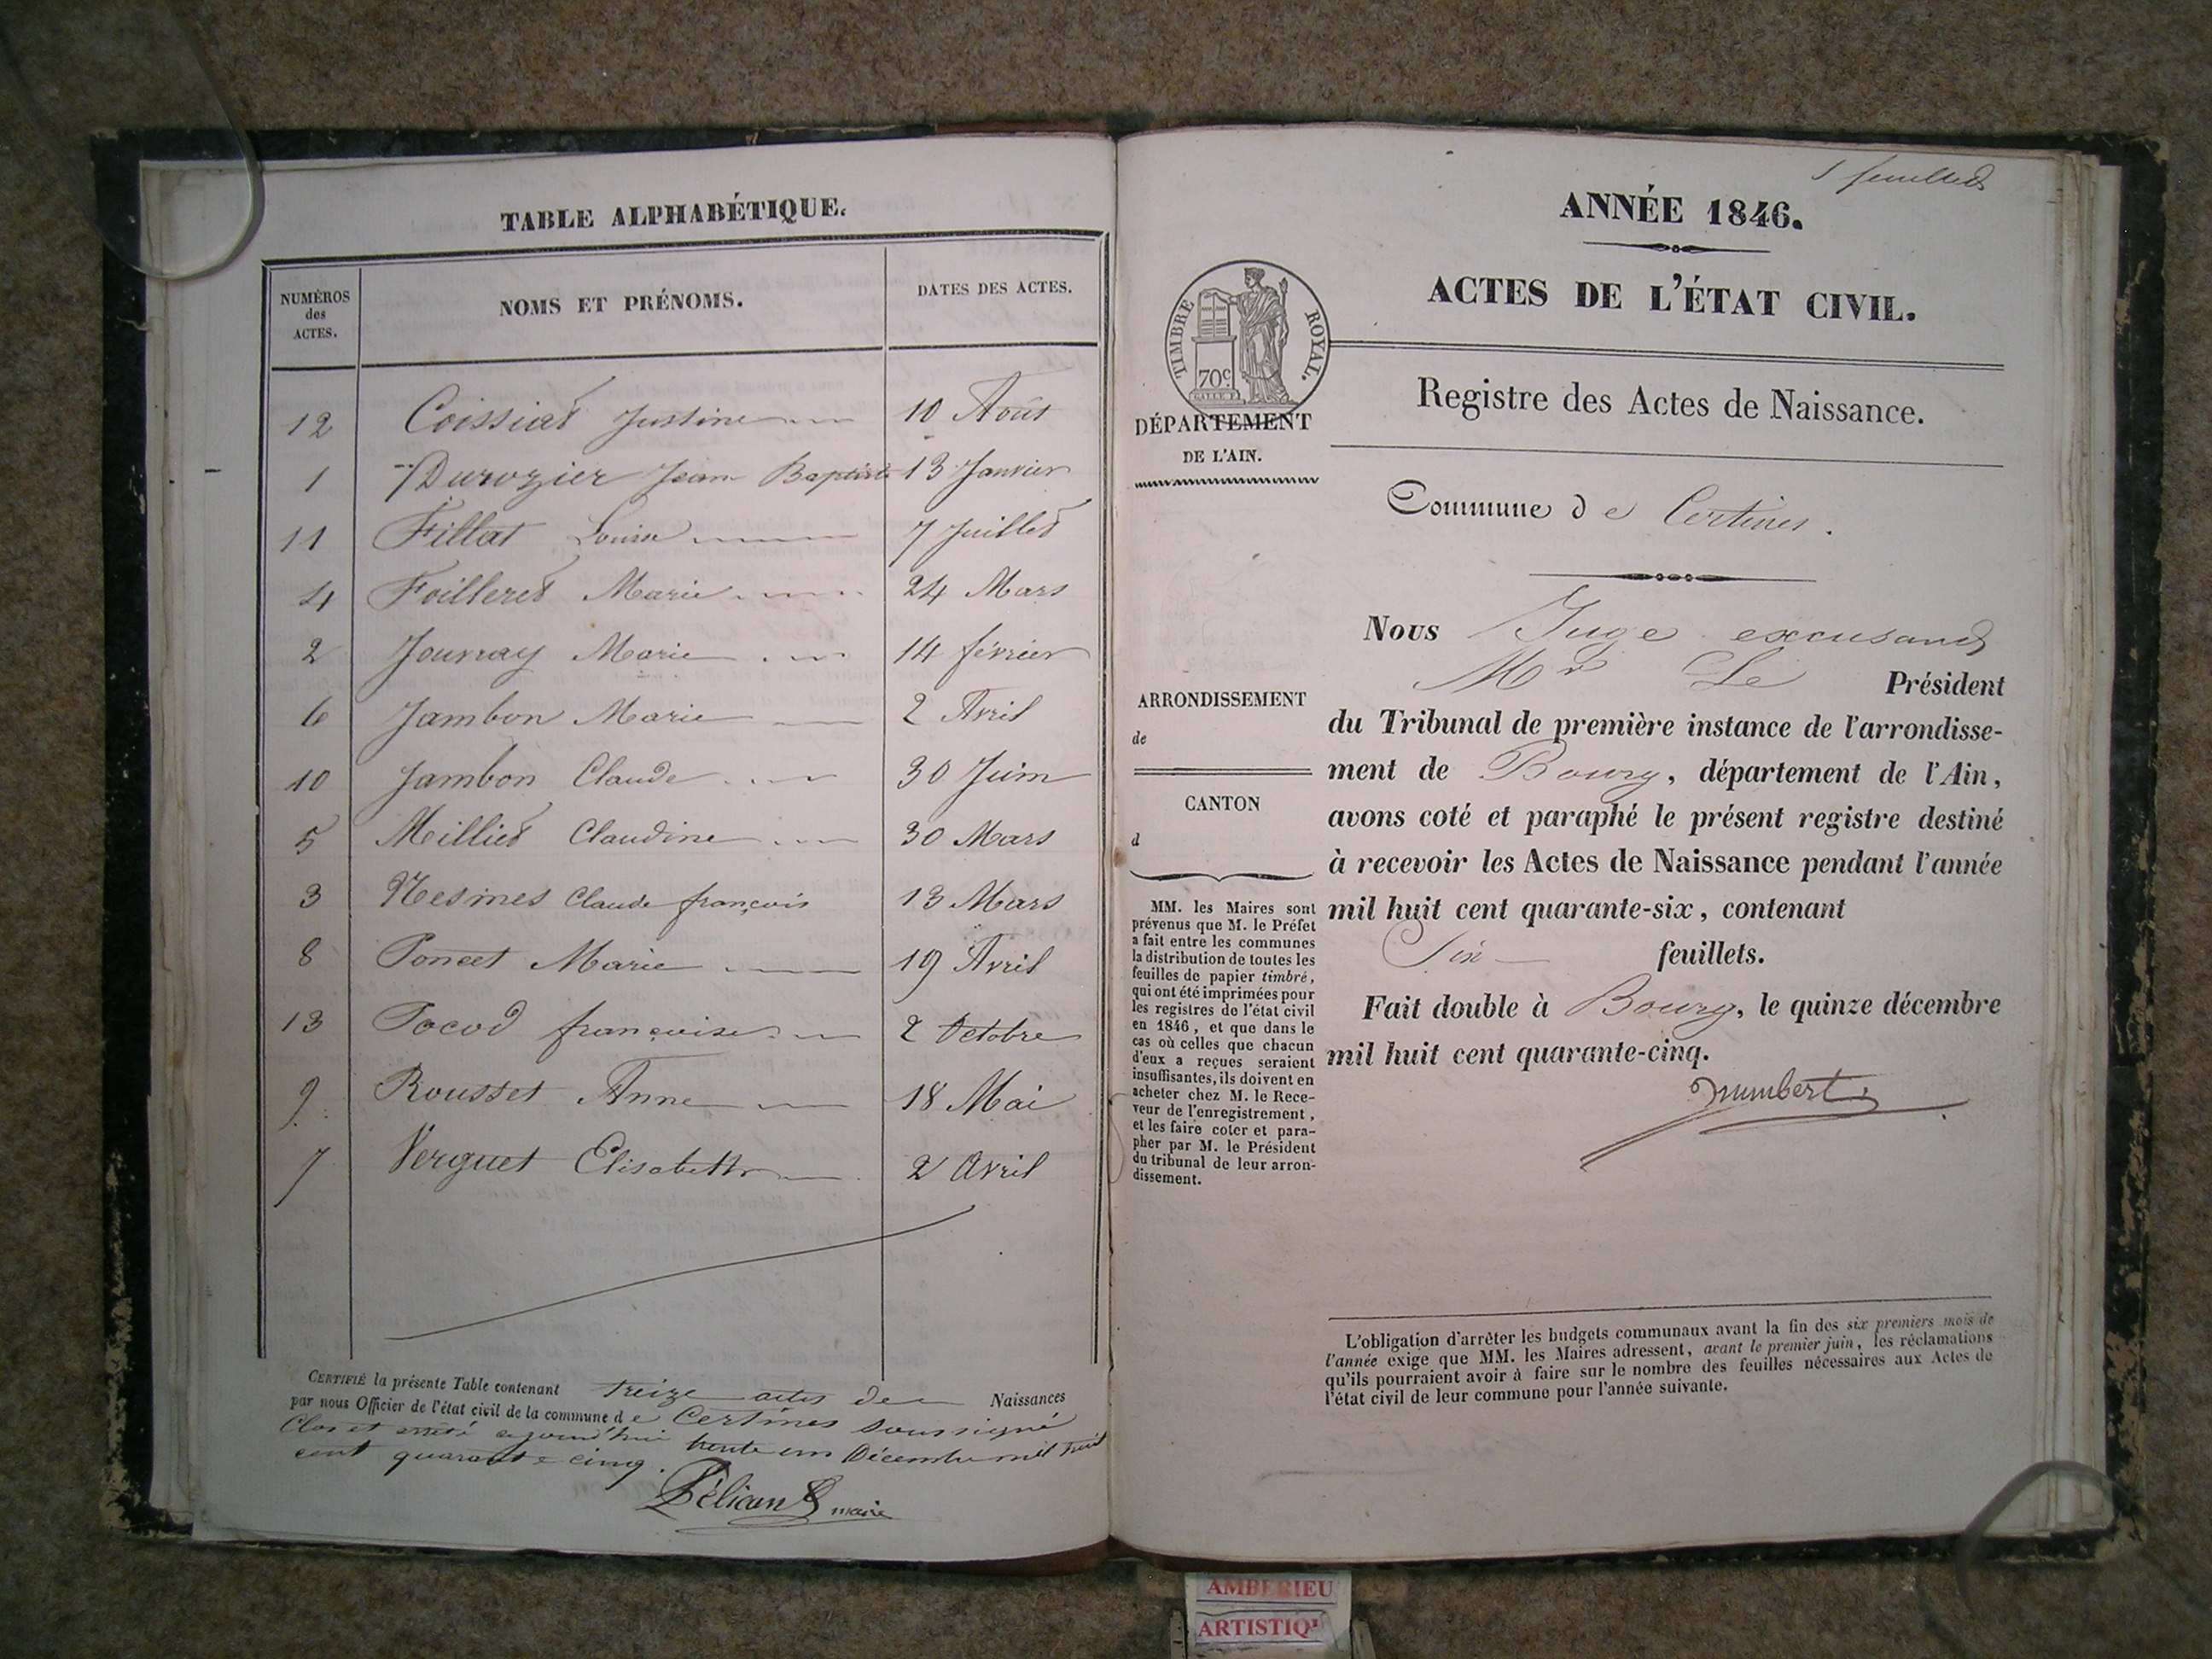 TABLE ALPHABÉTIQUE.
NUMÉROS des ACTES. NOMS ET PRÉNOMS. DATES DES ACTES.
12 Coissiat Justine 10 Août
1 Durozier Jean Baptiste 13 Janvier
11 Fillat Louise 7 Juillet
4 Foilleret Marie 24 Mars
2 Jouvray Marie 14 février
6 Jambon Marie 2 Avril
10 Jambon Claude 30 Juin
5 Milliet Claudine 30 Mars
3 Nesmes Claude françois 13 Mars
8 Poncet Marie 19 Avril
13 Pocod françoise 2 Octobre
9 Rousset Anne 18 Mai
7 Verguet Elisabeth 2 Avril
CERTIFIÉ la présente Table contenant treize actes de Naissances
par nous Officier de l'état civil de la commune de Certines soussigné
Clos et arrêté aujourd'hui trente un Décembre mil huit
cent quarante cinq.
Pélican maire
feuillet
ANNÉE 1846.
ACTES DE L'ÉTAT CIVIL.
TIMBRE ROYAL.
70c
DÉPARTEMENT
DE L'AIN.
Registre des Actes de Naissance.
Commune de Certines.
ARRONDISSEMENT
de
CANTON
d
MM. les Maires sont
prévenus que M. le Préfet
a fait entre les communes
la distribution de toutes les
feuilles de papier timbré,
qui ont été imprimées pour
les registres de l'état civil
en 1846, et que dans le
cas où celles que chacun
d'eux a reçues seraient
insuffisantes, ils doivent en
acheter chez M. le Rece-
veur de l'enregistrement,
et les faire coter et para-
pher par M. le Président
du tribunal de leur arron-
dissement.
Nous Juge excusant
Mr Le Président
du Tribunal de première instance de l'arrondisse-
ment de Bourg, département de l'Ain,
avons coté et paraphé le présent registre destiné
à recevoir les Actes de Naissance pendant l'année
mil huit cent quarante-six, contenant
Six feuillets.
Fait double à Bourg, le quinze décembre
mil huit cent quarante-cinq.
L'obligation d'arrêter les budgets communaux avant la fin des six premiers mois de
l'année exige que MM. les Maires adressent, avant le premier juin, les réclamations
qu'ils pourraient avoir à faire sur le nombre des feuilles nécessaires aux Actes de
l'état civil de leur commune pour l'année suivante.
AMBERIEU
ARTISTIQ